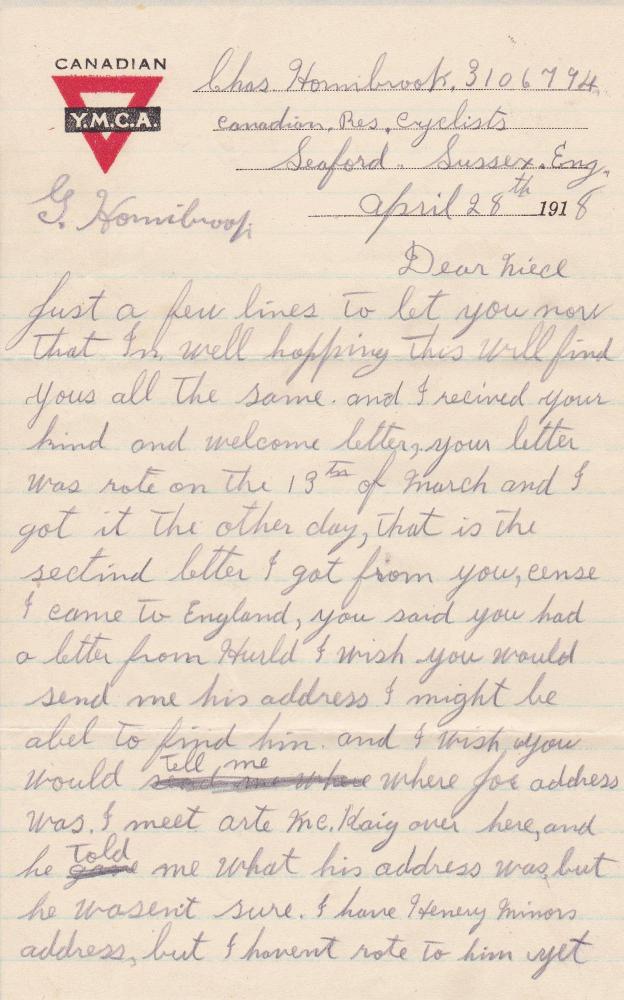 CANADIAN
Y.M.C.A.
Chas Hornibrook. 3106794
Canadian. Res. Cyclists
Seaford. Sussex. Eng.
April 28th 1918
G. Hornibrook
Dear Niece
Just a few lines to let you now
that Im well hopping this will find
yous all the same. and I recived your
kind and welcome letter, your letter
was rote on the 13th of March and I
got it the other day, that is the
sectind letter I got from you, cense
I came to England, you said you had
a letter from Hurld I wish you would
send me his address I might be
abel to find him. and I wish you
would tell me where Joe address
was. I meet arte Mc.Kaig over here, and
he told me what his address was, but
he wasen't sure. I have Henery Minors
address, but I havent rote to him yet